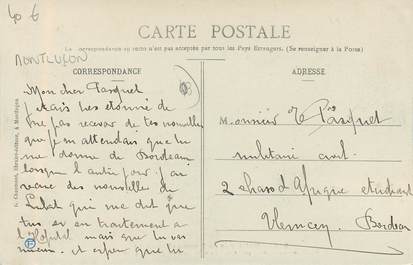 40 €
MONTLUÇON
CARTE POSTALE
La correspondance au recto n'est pas acceptée par tous les Pays Etrangers. (Se renseigner à la Poste)
CORRESPONDANCE
ADRESSE
Mon cher Pasquet
J etais tres etonné de
pas recevoir de tes nouvelles
que je m attendais que tu
me donne de Bordeau
lorsque l autre jour j ai
des nouvelles de
qui me dit que
tu es en traitement a
l Hopital mais que tu vas
mieux et esper que tu
Monsieur Pasquet
militaire
2 chass d Afrique
Tlemcen Bordeau